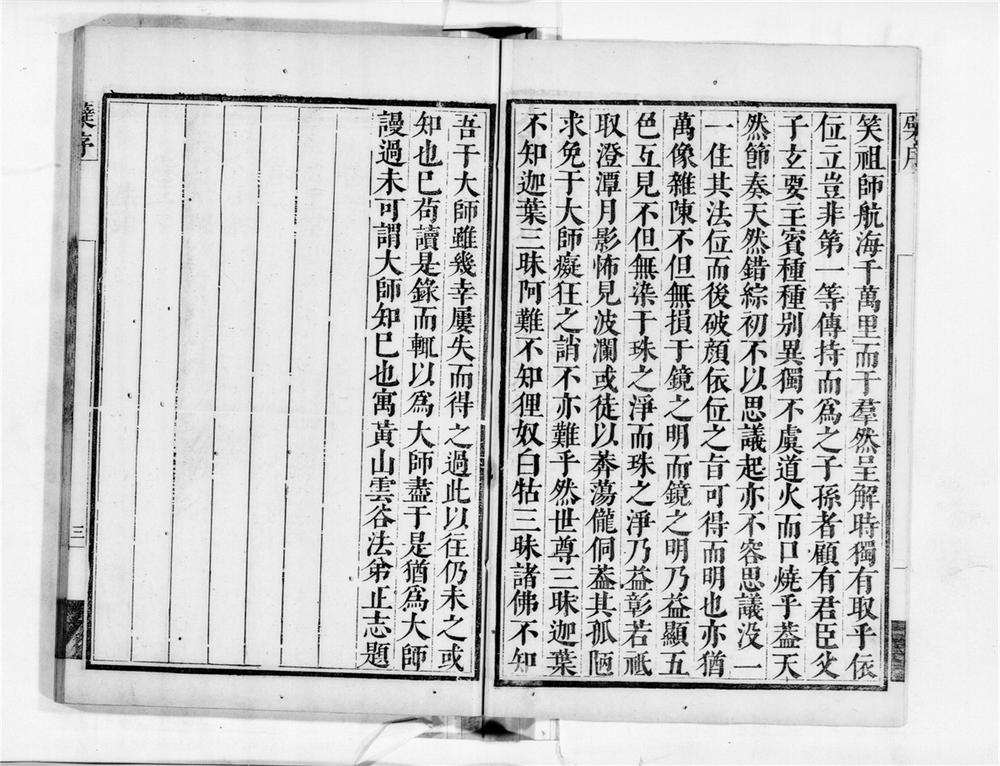 笑祖師航海千萬里而于羣然呈解時獨有取乎依
位立豈非第一等傳持而為之子孫者顧有君臣父
子玄要主賓種種別異獨不虞道火而口燒乎葢天
然節奏天然錯綜初不以思議起亦不容思議没一
一住其法位而後破顔依位之旨可得而明也亦猶
萬像雜陳不但無損于鏡之明而鏡之明乃益顯五
色互見不但無染于珠之淨而珠之淨乃益彰若祗
取澄潭月影怖見波瀾或徒以莽蕩儱侗葢其孤陋
求免于大師癡狂之誚不亦難乎然世尊三昧迦葉
不知迦葉三昧阿難不知狸奴白牯三昧諸佛不知
吾于大師雖幾幸屢失而得之過此以往仍未之或
知也巳茍讀是錄而輒以為大師盡于是猶為大師
謾過未可謂大師知巳也寓黃山雲谷法弟正志題
序
三